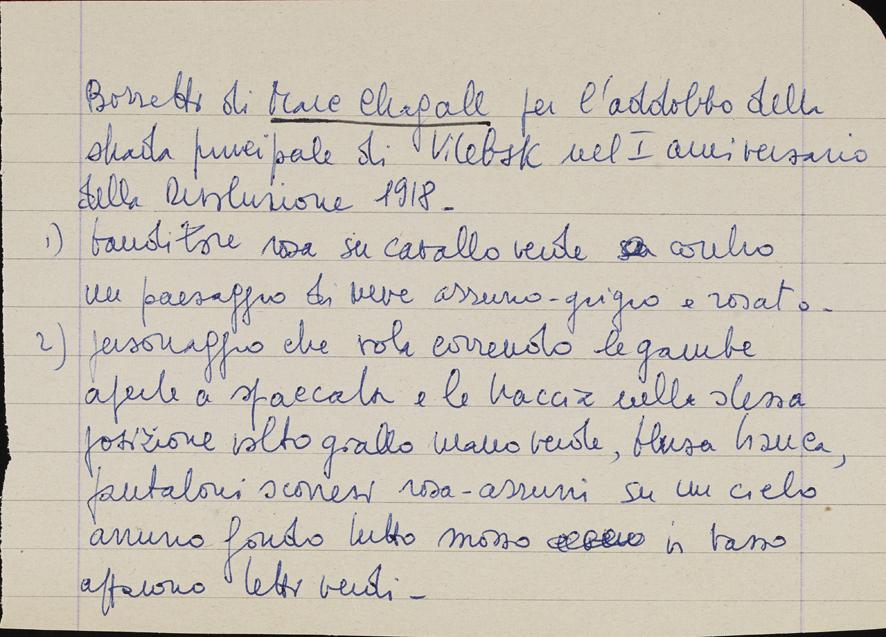 Bozzetti di Marc Chagall per l'addobbo della
strada principale di Vitebsk nel I anniversario
della Rivoluzione 1918 -
1) banditore rosa su cavallo verde contro
un paesaggio di neve azzurro-grigio e rosato -
2) personaggio che vola correndo le gambe
aperte a spaccata e le braccia nella stessa
posizione volto giallo mano verde, blusa bianca,
pantaloni scozzesi rosa-azzurri su un cielo
azzurro fondo tutto mosso in basso
appaiono tetti verdi -